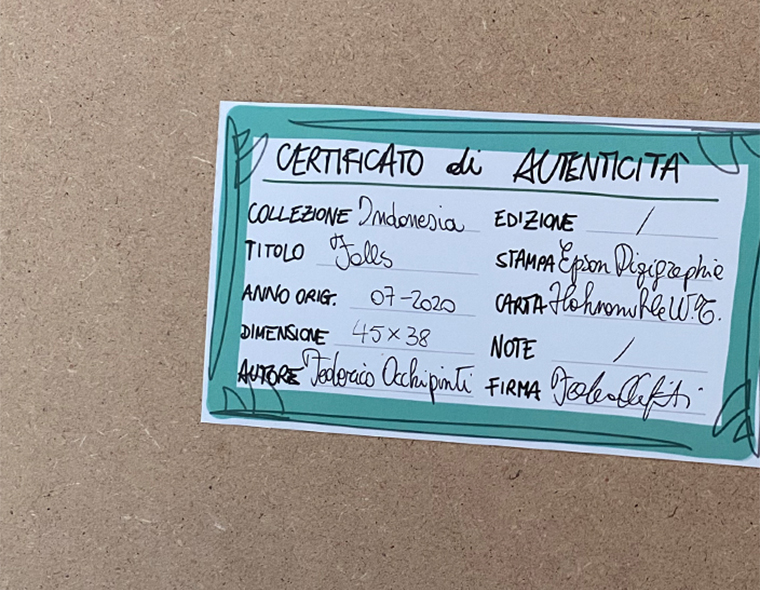 CERTIFICATO di AUTENTICITÀ
COLLEZIONE Indonesia
TITOLO Falls
ANNO ORIG. 07-2020
DIMENSIONE 45×38
AUTORE Federico Occhipinti
EDIZIONE /
STAMPA Epson Digigraphie
CARTA Hahnemühle W.T.
NOTE /
FIRMA